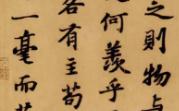 之則物与
何羨乎
各有主苟
一毫而